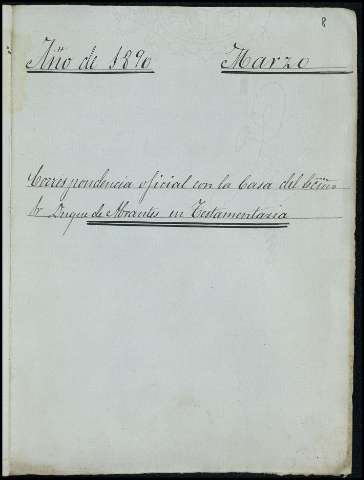 8
Año de 1890 Marzo
Correspondencia oficial con la Casa del Excmo
Sr Duque de Abrantes en Testamentaria